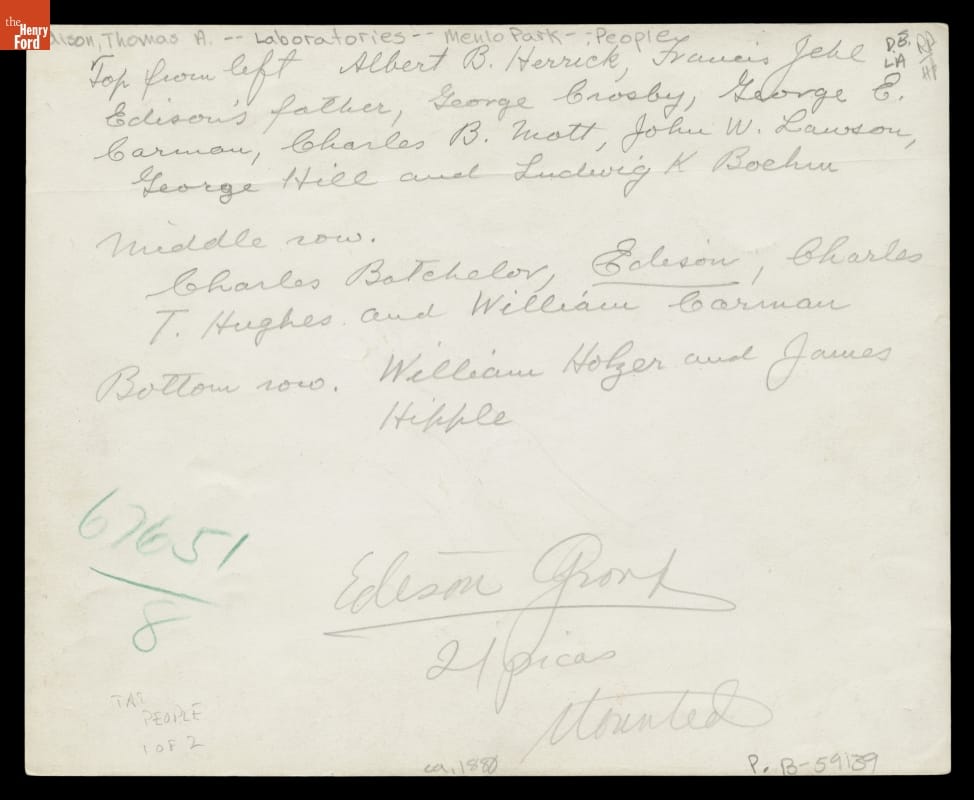 the
Henry
Ford
Edison, Thomas A. -- Laboratories -- Menlo Park -- People
D.B.
LA
RP
HI
Top from left Albert B. Herrick, Francis Jehl
Edison's father, George Crosby, George E.
Carman, Charles B. Mott, John W. Lawson,
George Hill and Ludwig K Boehm
Middle row.
Charles Batchelor, Edison, Charles
T. Hughes and William Carman
Bottom row. William Holzer and James
Hipple
67651
8
Edison Group
21 picas
Mounted
TAE
PEOPLE
1 OF 2
ca. 1880
P. B-59139